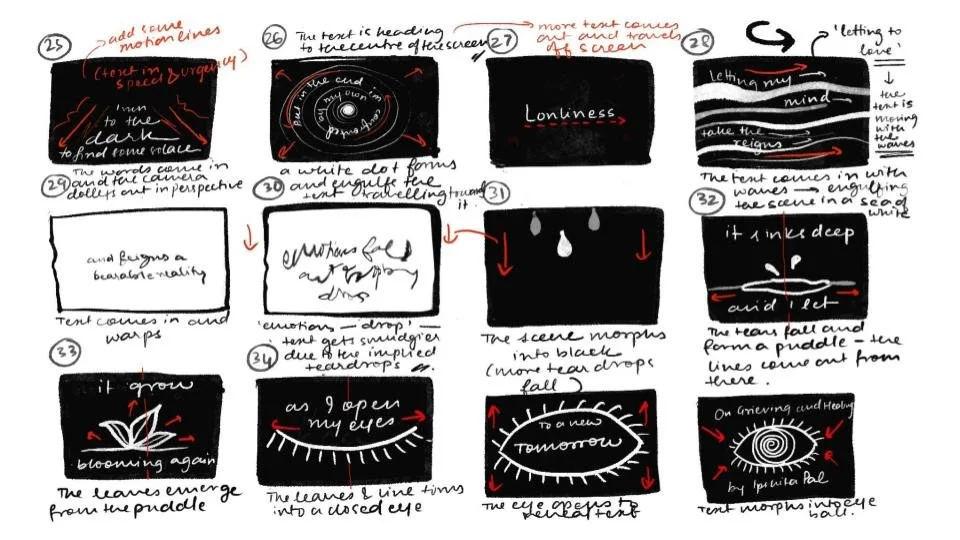 25
add some
motion lines
(text in
speed & urgency)
into
to the
dark
to find some solace
The words come in
and the camera
dolleys out in perspective
26
The text is heading
to the centre of the screen
but in the end im
confronted
by my own
a white dot forms
and engulfs the
text travelling toward
it.
27
more text comes
out and travels
off screen
Lonliness
28
'letting to
love'
↓
the
text is
moving
with
the
waves
letting my
mind
take the
reigns
The text comes in with
waves → engulfing
the scene in a sea of
white
29
and feigns a
bearable reality
Text comes in and
warps
30
emotions fall
drop
'emotions — drop' —
text gets smudgier
due to the implied
teardrops
31
The scene morphs
into black
(more tear drops
fall
32
it sinks deep
and i let
The tears fall and
form a puddle – the
lines come out from
there.
33
it grow
blooming again
The leaves emerge
from the puddle
34
as I open
my eyes
The leaves & line turns
into a closed eye
To a new
Tomorrow
The eye opens to
reveal text
On Grieving and Healing
by Ipshita Pal
Text morphs into eye
ball.